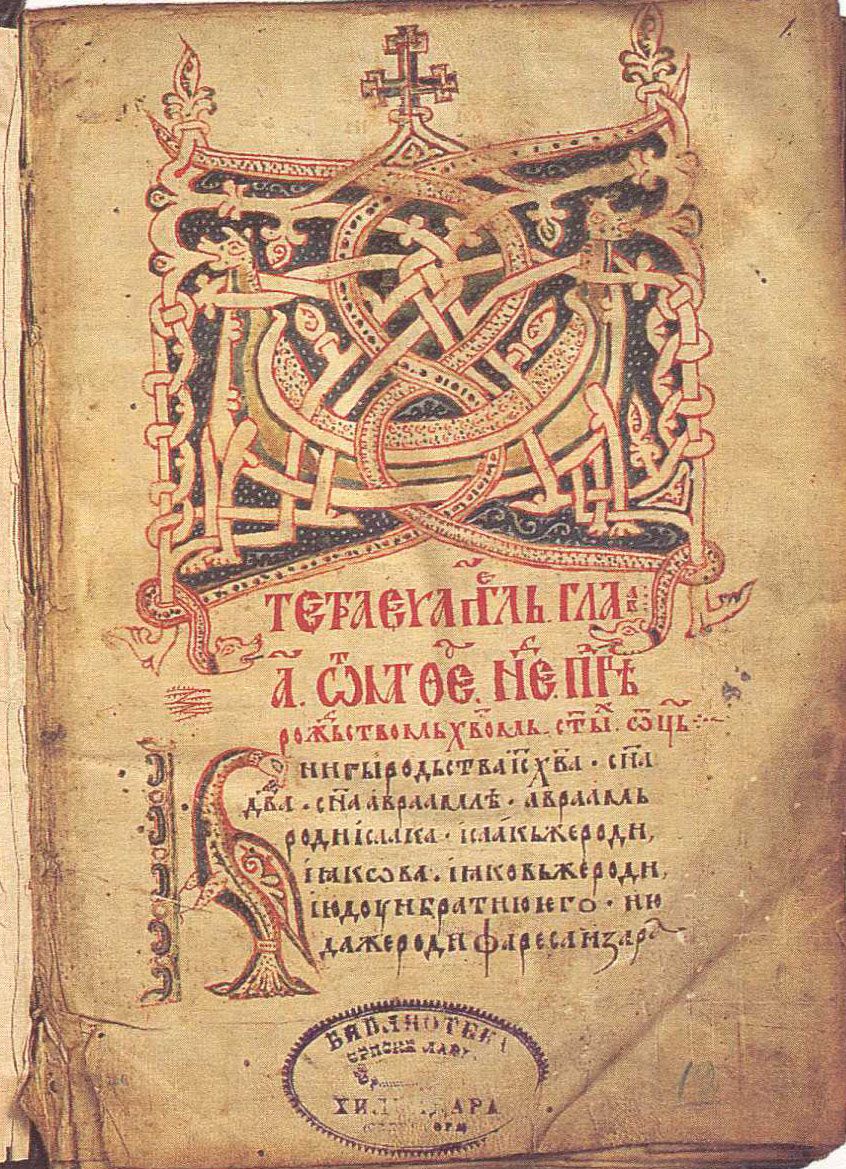 ТЕТРАЕѴАГГЛЬ. ГЛАВ
А. Ѿ МАТѲЕ. НЕД. ПРѢ
рожⷣьствомь хв҃омь. ст҃ыⷯ. ѿць
Книгы родьства іс҃ х҃ва · сн҃а
дв҃а · сн҃а авраамлѣ · авраамь
роди ісаака · ісаакь же роди,
іꙗкѡва · іꙗковь же роди,
іюдоу и братию ѥго · ию
да же роди фареса и зара
БИБЛИОТЕКА
СРПСКЕ ЛАВРЕ
ХИЛАНДАРА